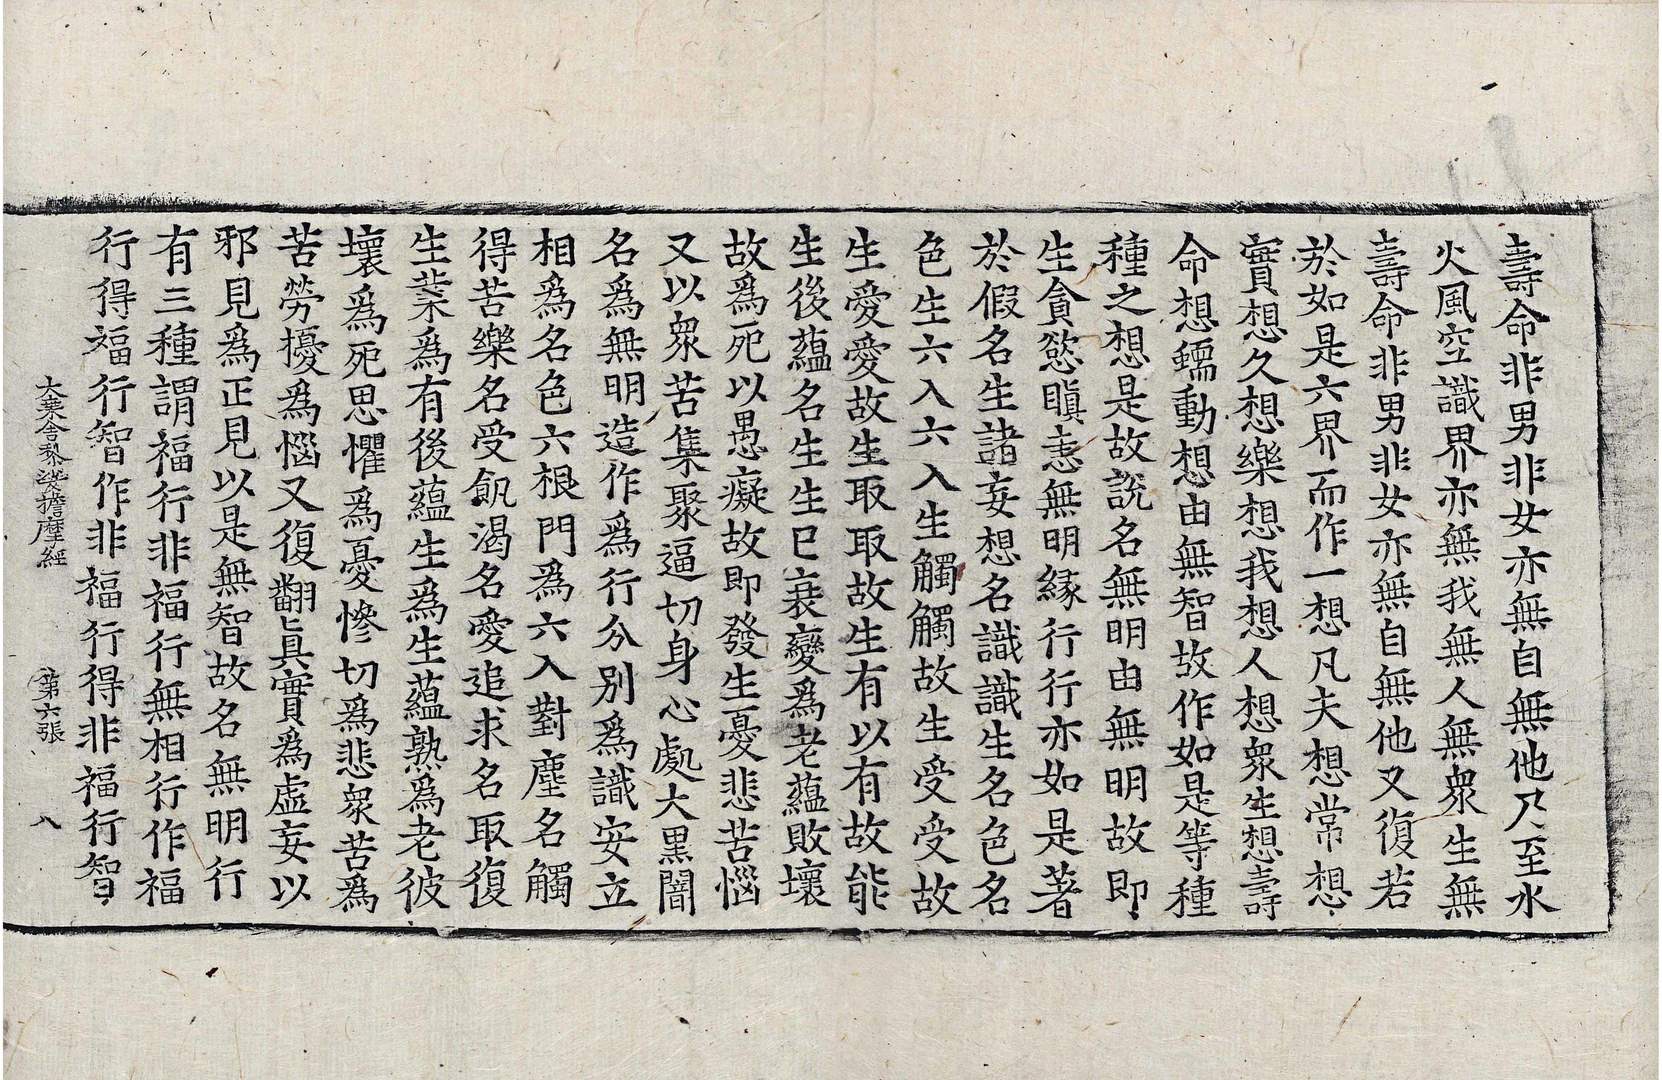 壽命非男非女亦無自無他乃至水
火風空識界亦無我無人無衆生無
壽命非男非女亦無自無他又復若
於如是六界而作一想凡夫想常想
實想久想樂想我想人想衆生想壽
命想蠕動想由無智故作如是等種
種之想是故說名無明由無明故即
生貪慾瞋恚無明緣行行亦如是著
於假名生諸妄想名識識生名色名
色生六入六入生觸觸故生受受故
生愛愛故生取取故生有以有故能
生後蘊名生生已衰變爲老蘊敗壞
故爲死以愚癡故即發生憂悲苦惱
又以衆苦集聚逼切身心處大黒闇
名爲無明造作爲行分別爲識安立
相爲名色六根門爲六入對塵名觸
得苦樂名受飢渴名愛追求名取復
生業爲有後蘊生爲生蘊熟爲老彼
壞爲死思懼爲憂慘切爲悲衆苦爲
苦勞擾爲惱又復翻眞實爲虛妄以
邪見爲正見以是無智故名無明行
有三種謂福行非福行無相行作福
行得福行智作非福行得非福行智
大乘舍黎娑擔摩經 第六張 八